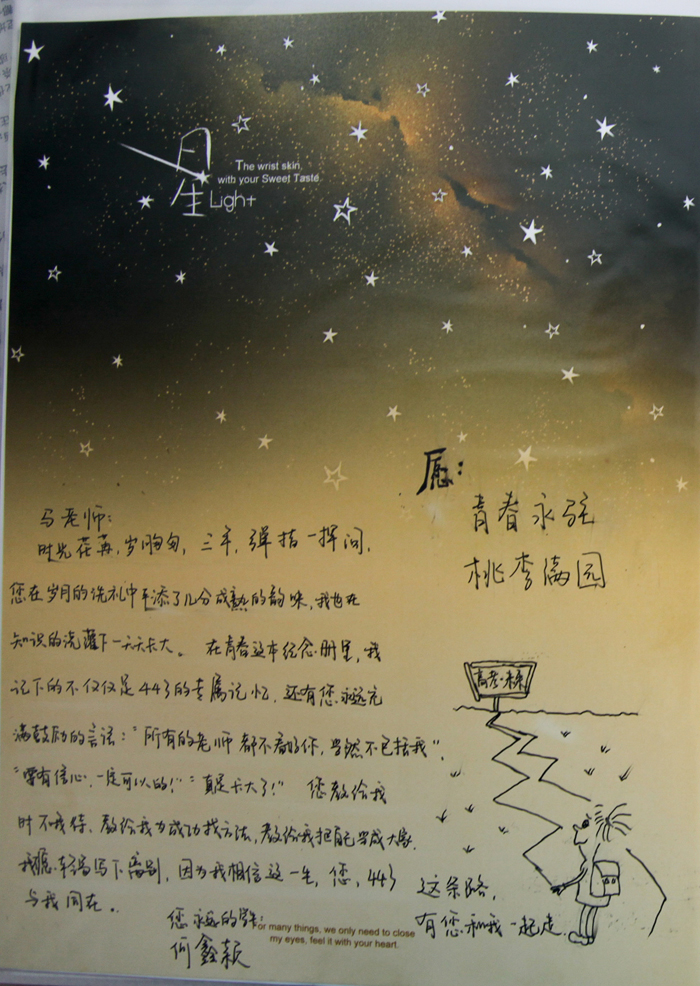 月
生
Light
The wrist skin,
with your Sweet Taste.
愿：
青春永驻
桃李满园
马老师：
时光荏苒，岁月匆匆，三年，弹指一挥间，
您在岁月的洗礼中平添了几分成熟的韵味，我也在
知识的浇灌下一天天长大。在青春这本纪念册里，我
记下的不仅仅是443的专属记忆，还有您永远充
满鼓励的言语："所有的老师都不看好你，当然不包括我"，
"要有信心，一定可以的！""真是长大了！" 您教给我
时不我待、教给我为成功找方法，教给我把自己当成大象，
我愿轻轻写下离别，因为我相信这一生，您，443
与我同在。
您永远的学生：
何鑫颖
高考·未来
这条路，
有您和我一起走.
For many things, we only need to close
my eyes, feel it with your heart.